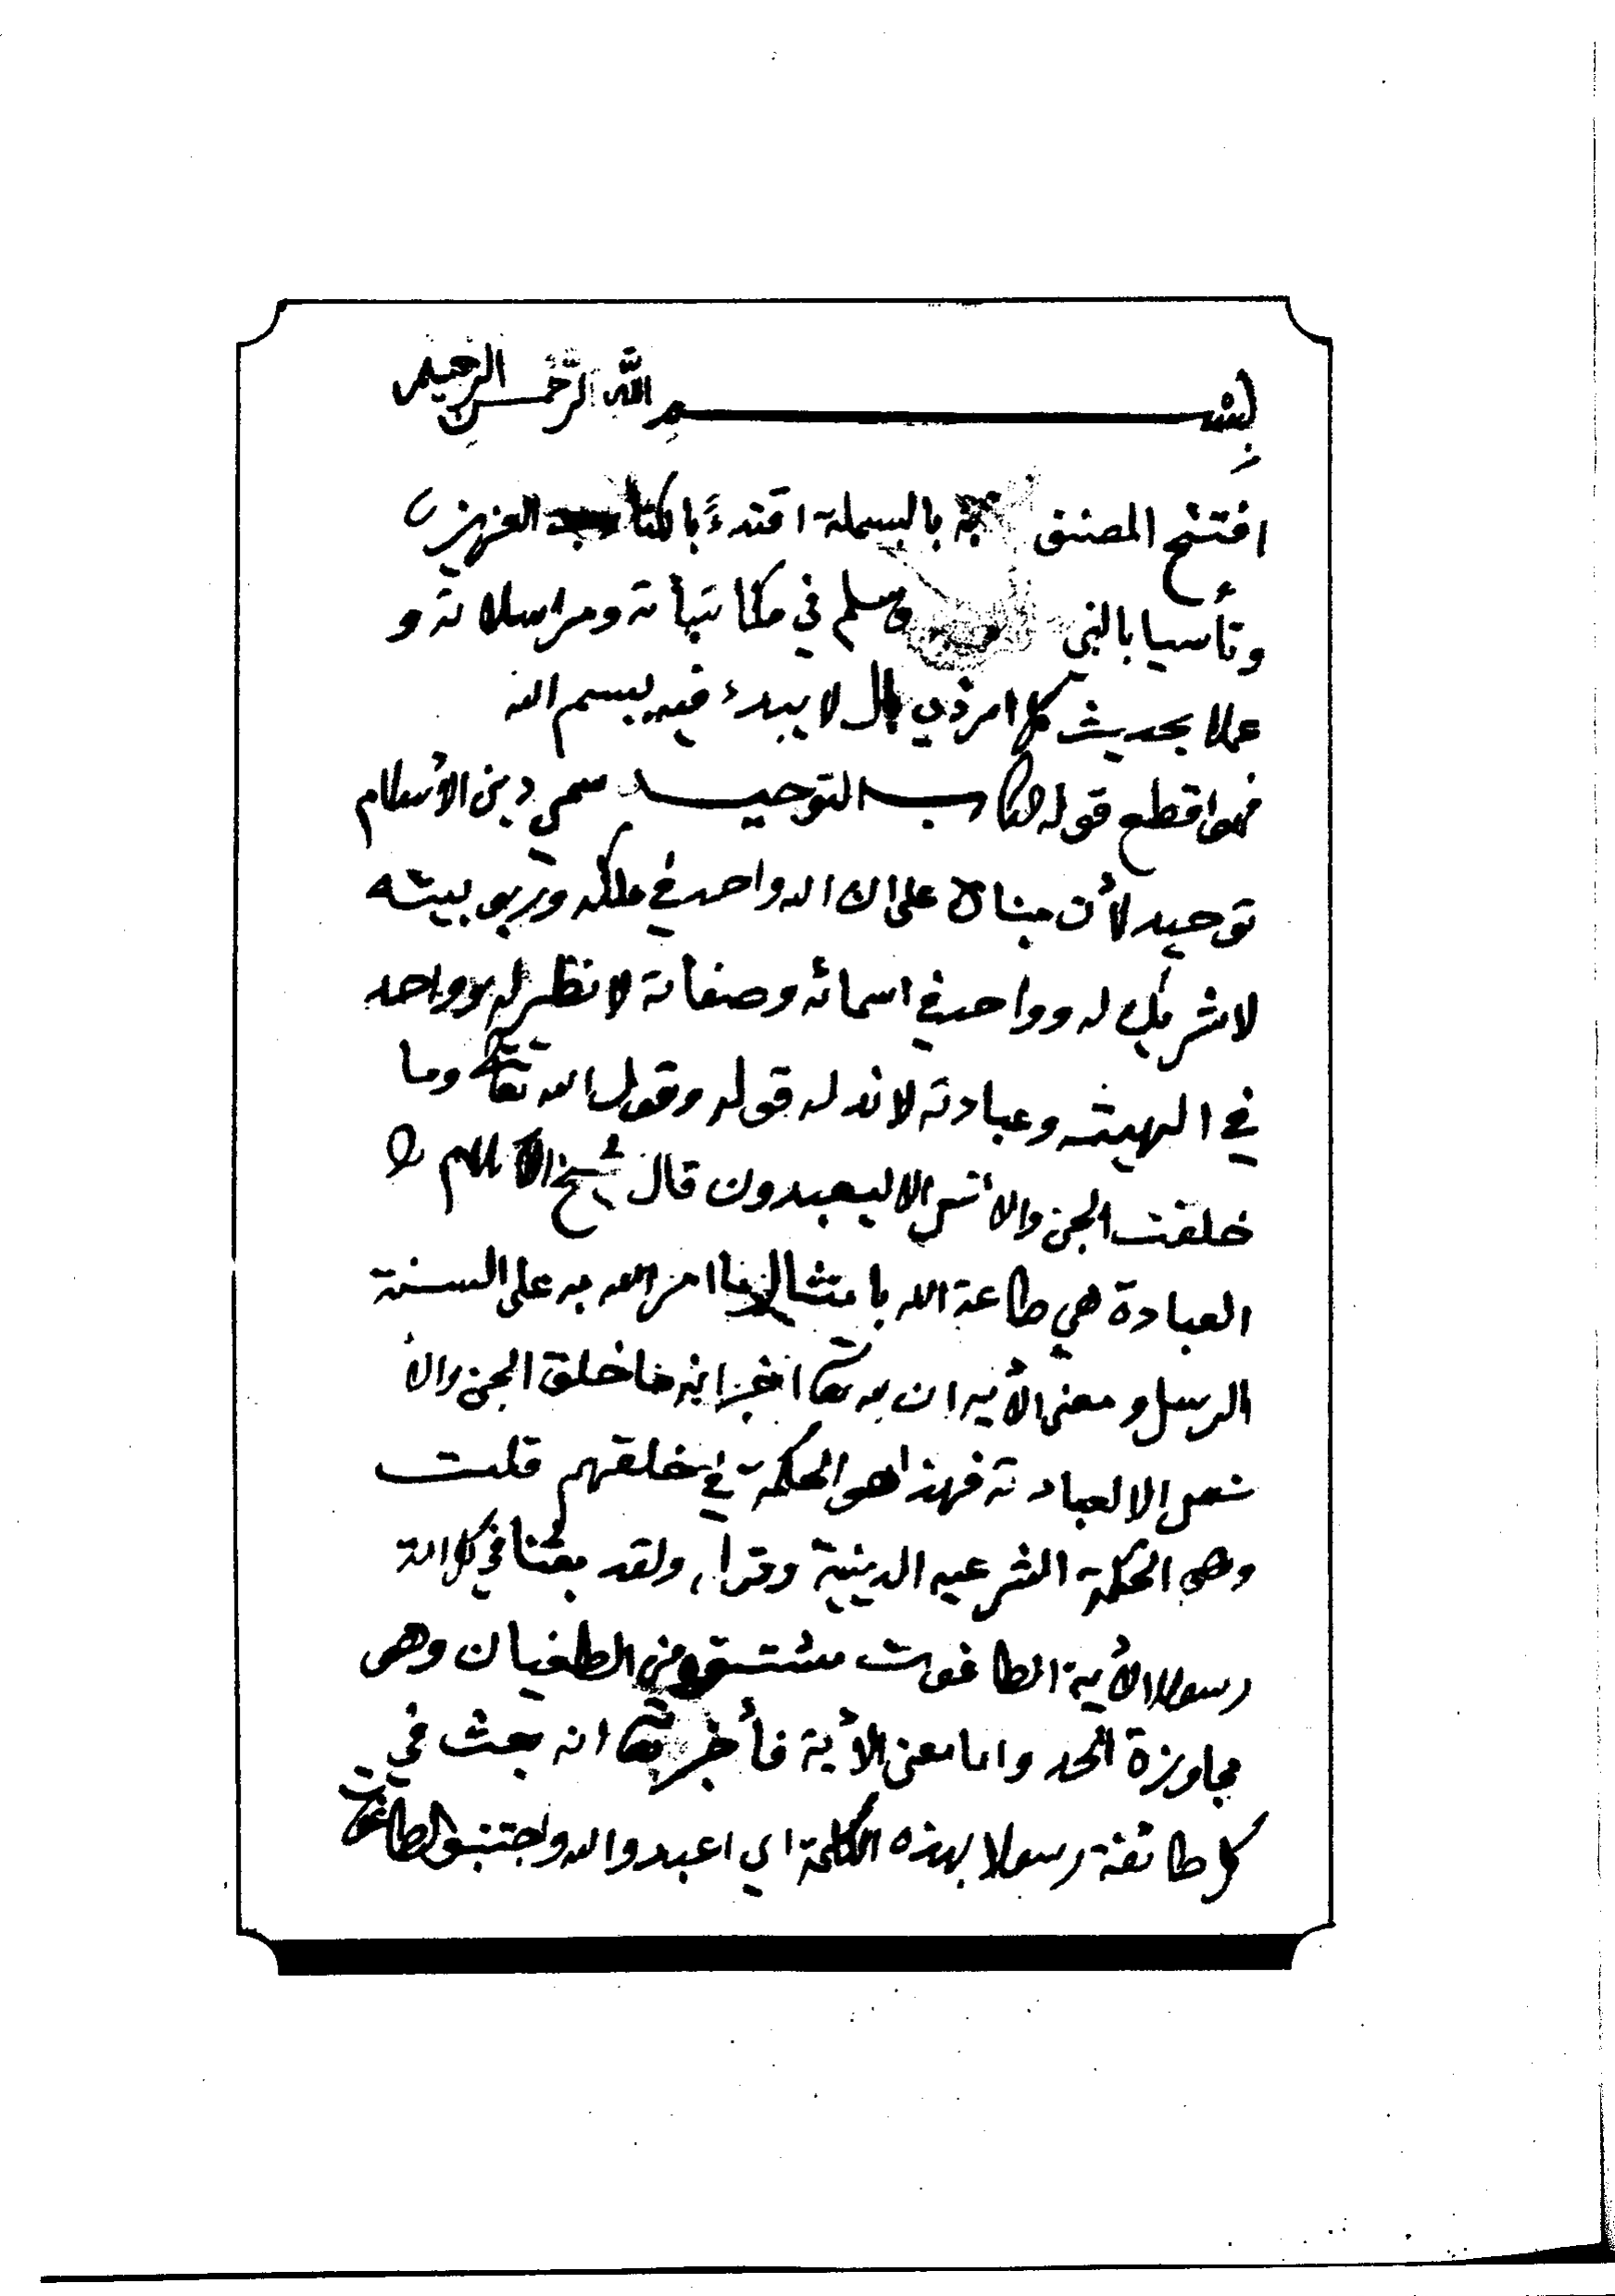 بسم الله الرحمن الرحيم
افتتح المصنف بالبسملة اقتدءً بالكتاب العزيز
وتأسيا بالنبي وسلم في مكاتبأته ومراسلاته و
عملا بحديث كل امر ذي بال لا يبدء فيه ببسم الله
فهو اقطع قوله كتاب التوحيد سمي دين الأسلام
توحيد لأن مبناه على ان الله واحد في ملكه وربوبيته
لا شريك له وواحد في اسمائه وصفاته لا نظير له وواحد
في الهيته وعبادته لا ند له قوله وقول الله تعا وما
خلقت الجن والأنس الا ليعبدون قال شيخ الأسلام
العبادة هي طاعة الله بامتثال ما امر الله به على السنة
الرسل ومعنى الأيه ان تعا اخبر انه ما خلق الجن والأ
نس الا لعبادته فهذا هو الحكمة في خلقهم قلت
وهي الحكمة الشرعيه الدينية ولقد بعثنا في كل امة
رسولا الأية الطاغوت مشتق من الطغيان وهو
مجاوزة الحد واما معنى الأية فأخبر تعا انه بعث في
كل طائفة رسولا بهذه الكلمة اي اعبدوا الله واجتنبوا الطاغوت